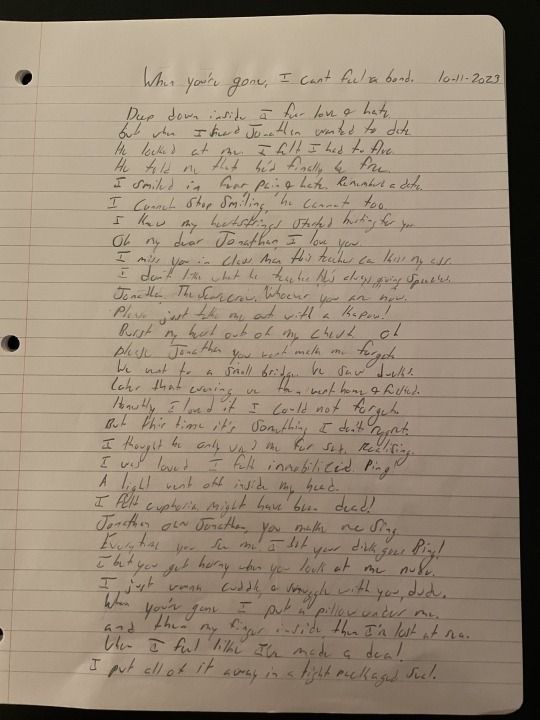 When you're gone, I cant feel a bond. 10-11-2023
Deep down inside I fear love & hate,
but when I heard Jonathan wanted to date
He looked at me. I felt I had to flee.
He told me that he'd finally be free.
I smiled in fear pain & hate. Remember a date.
I cannot stop smiling, he cannot too.
I knew my heartstrings started hurting for you
Oh my dear Jonathan, I love you.
I miss you in class man this teacher can kiss my ass.
I don't like what he teaches, always giving speeches.
Jonathan, The Scarecrow. Whoever you are now.
Please just take me out with a Kapow!
Burst my heart out of my chest, oh
please Jonathan you wont make me forget.
We went to a small bridge, we saw ducks.
Later that evening we then went home & fucked.
Honestly I loved it I could not forget.
But this time it's something I don't regret.
I thought he only used me for sex. Realising,
I was loved I felt immobilized. Ping!
A light went off inside my head.
I felt euphoria might have been dead!
Jonathan Jonathan, you make me sing
Everytime you see me I bet your dick goes Ping!
I bet you get horny when you look at me nude.
I just wanna cuddle & snuggle with you, dude.
When you're gone I put a pillow under me.
and then my finger inside, then I'm lost at sea.
When I feel like Ive made a deal!
I put all of it away in a tight packaged seal.